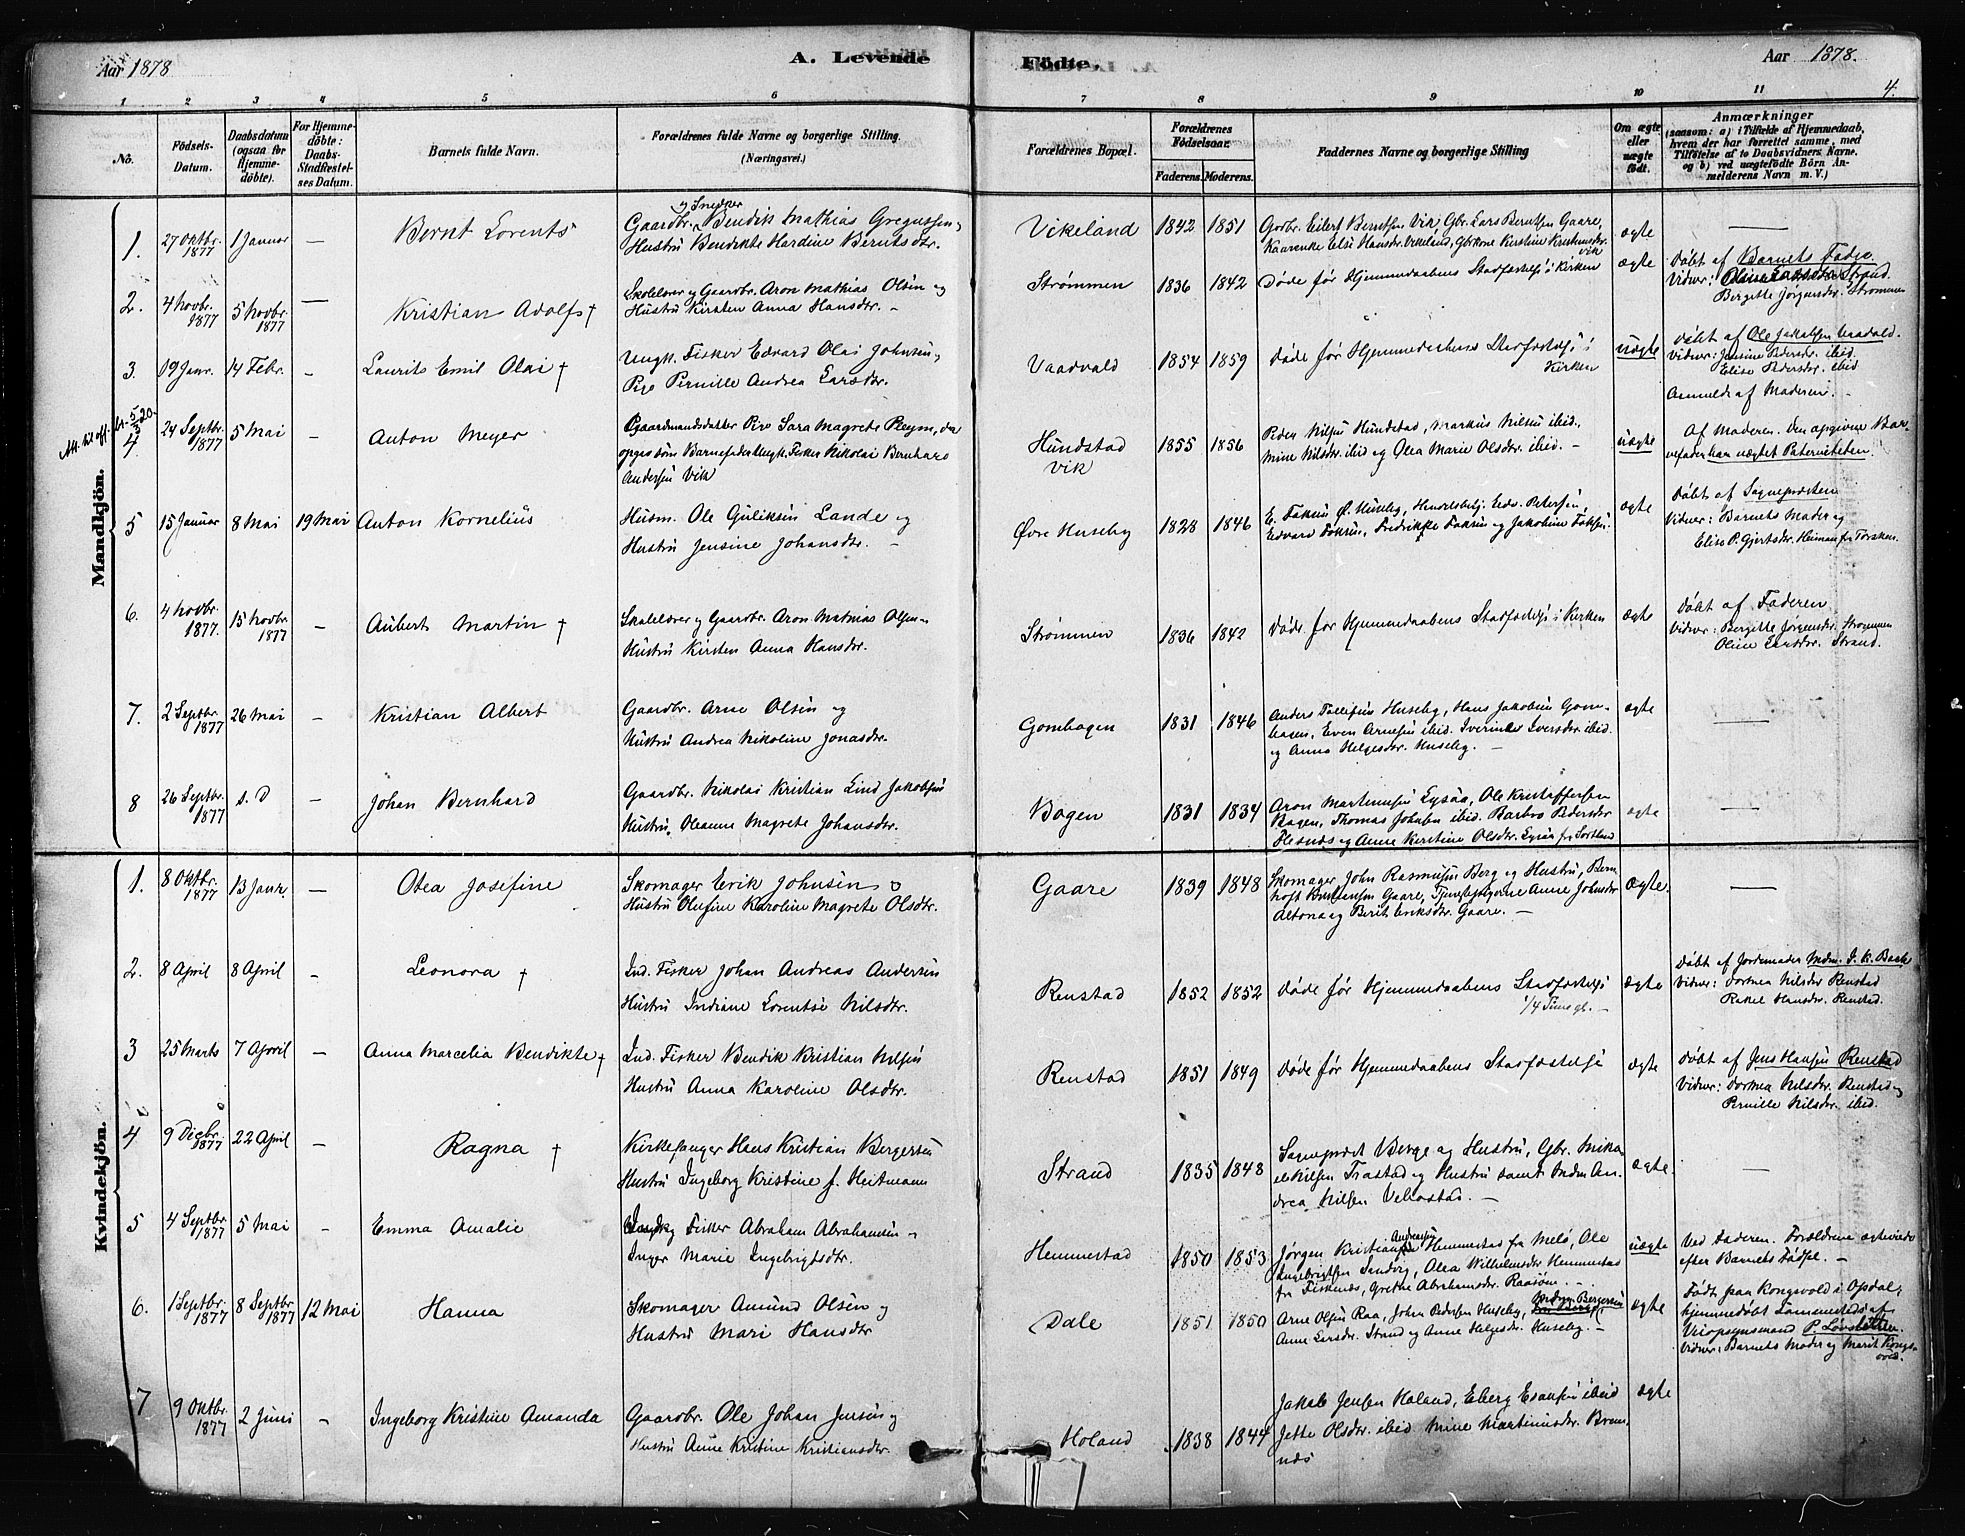 Aar 1878
A. Levende
Födte.
Aar 1878.
4.
1 2 3 4 5 6 7 8 9 10 11
No.
Födsels-Datum.
Daabsdatum (ogsaa for Hjemmedöbte).
For Hjemmedöbte: Daabs-Stadfæstelses Datum.
Barnets fulde Navn.
Forældrenes fulde Navne og borgerlige Stilling. (Næringsvei.)
Forældrenes Bopæl.
Forældrenes Födselsaar.
Faderens. Moderens.
Faddernes Navne og borgerlige Stilling
Om ægte eller uægte födt.
Anmærkninger
(saasom: a) i Tilfælde af Hjemmedaab, hvem der har forrettet samme, med Tilföielse af to Daabsvidners Navne, og b) ved uægtefödte Börn Anmelderens Navn m. V.)
Mandkjön.
1. 27 Oktbr. 1877 1 Januar — Bernt Lorents
Gaardbr. og Snedker Bendik Mathias Gregussen,
Hustru Bendikte Hardine Berntsdtr.
Vikeland 1842 1851
Gaardbr. Eilert Berntsen Vik, Gbr. Lars Berntsen Gaare,
Else Hansdtr. Vikeland, Kerstine Vik
ægte —
2. 4 Novbr. 1877 5 Novbr. 1877 — Kristian Adolf †
Skolelærer og Gaardbr. Aron Mathias Olsen og
Hustru Kirsten Anna Hansdtr. —
Strømmen 1836 1842
Døde før Hjemmedaabens Stadfæstelse i Kirken
ægte
Døbt af Barnets Fader.
Vidner: Oline Larsdtr. Strand.
Bergitte Jørgensdtr. Strømmen
3. 09 Janr. 14 Febr. — Laurits Emil Olai †
Ungk. Fisker Edvard Olai Johnsen,
Pige Pernille Andrea Larsdtr.
Vaadvald 1854 1859
Døde før Hjemmedaabens Stadfæstelse i
Kirken
uægte
Døbt af Ole Jakobsen Vaadvald.
Vidner: Jensine Pedersdtr. ibid.
Elise Pedersdtr. ibid
Anmeldt af Moderen. —
4 24 Septbr. 1877 5 Mai — Anton Meyer
Gaardmandsdatter Pige Sara Magrete Reym, der
opgis som Barnefader Ungk. Fisker Nikolai Bernhard
Andersen Vik
Hundstad
Vik
1855 1856
Peder Nilsen Hundstad, Markus Nilsen ibid,
Mine Nilsdtr. ibid og Olea Marie Olsdtr. ibid. —
uægte
Af Moderen. Den opgivne Bar-
nefader har nægtet Paterniteten.
5 15 Januar 8 Mai 19 Mai Anton Kornelius
Husm. Ole Guliksen Lande og
Hustru Jensine Johansdtr. —
Øvre Huseby 1828 1846
E. Faksen Ø. Huseby, Handelsbetj. Edv. Petersen,
Edvard Faksen, Fredrikke Faksen og Jakobine Faksen.
ægte
Døbt af Sognepræsten
Vidner: Barnets Moder og
Elise P. Gjertsdtr. Heiman fra Torsken.
6. 4 Novbr. 1877. 15 Novbr. 1877 — Aubert Martin †
Skolelærer og Gaardbr. Aron Mathias Olsen
Hustru Kirsten Anna Hansdtr.
Strømmen 1836 1842
Døde før Hjemmedaabens Stadfæstelse i Kirken
ægte
Døbt af Faderen
Vidner: Bergitte Jørgensdtr. Strømmen
Oline Larsdtr. Strand.
7. 2 Septbr. 1877 26 Mai — Kristian Albert
Gaardbr. Arne Olsen og
Hustru Andrea Nikoline Jonasdtr.
Gombogen 1831 1846
Anders Tollefsen Huseby, Hans Jakobsen Gom-
bogen, Even Arnesen ibid. Iversdtr. ibid.
og Anna Helgesdtr. Huseby. —
ægte —
8 26 Septbr. 1877 s. D — Johan Bernhard
Gaardbr. Nikolai Kristian Lind Jakobsen
Hustru, Oleanna Magrete Johansdtr.
Bogen 1831 1834
Aron Martinusen Eysaa, Ole Kristoffersen
Bogen, Thomas Johnsen ibid. Barbro Pedersdtr
Flesnes og Anne Kerstine Olsdtr. Eysaa fra Sortland
ægte —
Kvindekjön.
1. 8 Oktbr. 1877 13 Janr. — Otea Josefine
Skomager Erik Johnsen og
Hustru Olufine Karoline Magrete Olsdtr.
Gaare 1839 1848
Skomager John Rasmusen Berg og Hustru, Bern-
hoft Berntsen Gaare, Tjenestepigerne Anne Johnsdtr
Altona og Berit Eriksdtr. Gaare. —
ægte. —
2. 8 April 8 April — Leonora †
Ind. Fisker Johan Andreas Andersen
Hustru Indiane Lorentse Nilsdtr.
Renstad 1852 1852
Døde før Hjemmedaabens Stadfæstelse
1/4 Time gl. —
ægte
Døbt af Jordemoder Mdm. J. K. Bach
Vidner: Dortea Nilsdtr Renstad
Rakel Hansdtr. Renstad.
3 25 Marts 7 April — Anna Marcelia Bendikte †
Ind. Fisker Bendik Kristian Nilsen
Hustru Anna Karoline Olsdtr.
Renstad 1851 1849
Døde før Hjemmedaabens Stadfæstelse
ægte
Døbt af Jens Hansen Renstad
Vidner: Dortea Nilsdtr. Renstad og
Pernille Nilsdtr. ibid.
4 9 Decbr. 1877 22 April — Ragna †
Kirkesanger Hans Kristian Bergersen
Hustru Ingeborg Kristine f. Heitmann
Strand 1835 1848
Sognepræst Berge og Hustru, Gbr. Mika-
el Nilsen Trastad og Hustru samt Mdm An-
drea Nilsen Vebostad. —
ægte —
5 4 Septbr. 1877 5 Mai — Emma Amalie
Fisker Abraham Abrahamsen —
Inger Marie Ingebrigtsdtr.
Hemmestad 1850 1853
Jørgen Kristian Andreassen Hemmestad fra Melø, Ole
Ingebrigtsen Sandvig, Olea Wilhelmsdtr Hemmestad
fra Fiskenes, Grethe Abrahamsdtr.
uægte
Ved Faderen. Forældrene ægteviede
efter Barnets Fødsel. —
6. 1 Septbr. 1877 8 Septbr. 1877 12 Mai Hanna
Skomager Amund Olsen og
Hustru Mari Hansdtr
Dale 1851 1850
Arne Olsen Raa, Johan Pedersen Huseby, Madm Bergersen
Anne Larsdtr. Strand og Anne Helgesdtr. Huseby. —
ægte
Født paa Kongsvold i Opdal;
hjemmedøbt sammesteds af
Veiopsynsmand P. Løvsletten
Vidner: Barnets Moder og Marit Kongs-
vold.
7 9 Oktbr. 1877 2 Juni — Ingeborg Kristine Amanda
Gaardbr. Ole Johan Jensen og
Hustru Anne Kristine Kristiansdtr.
Holand 1838 1844
Jakob Jensen Holand, Eberg Esaiasen ibid
Jette Olsdtr. ibid Mine Martinusdtr. Brem-
nes
ægte